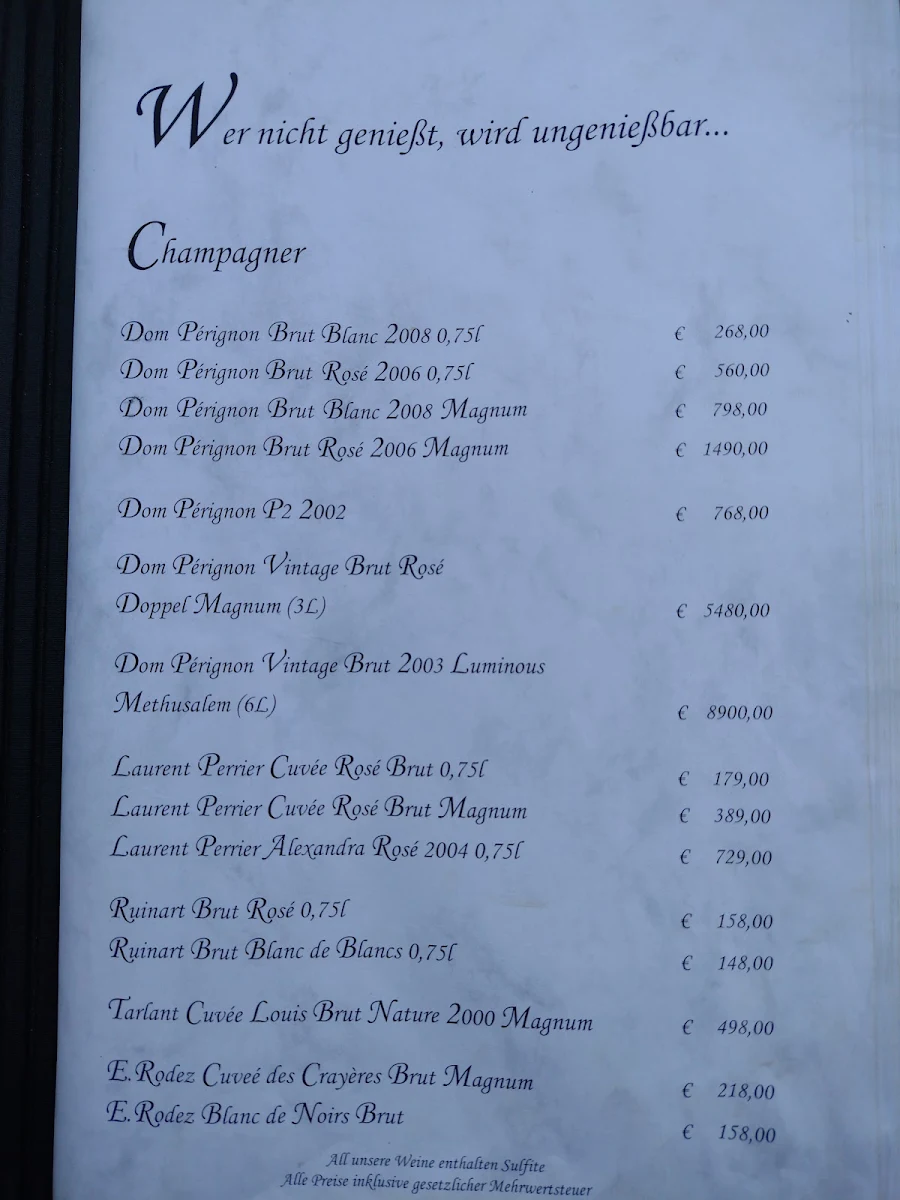 Wer nicht genießt, wird ungenießbar...
Champagner
Dom Pérignon Brut Blanc 2008 0,75l € 268,00
Dom Pérignon Brut Rosé 2006 0,75l € 560,00
Dom Pérignon Brut Blanc 2008 Magnum € 798,00
Dom Pérignon Brut Rosé 2006 Magnum € 1490,00
Dom Pérignon P2 2002 € 768,00
Dom Pérignon Vintage Brut Rosé
Doppel Magnum (3L) € 5480,00
Dom Pérignon Vintage Brut 2003 Luminous
Methusalem (6L) € 8900,00
Laurent Perrier Cuvée Rosé Brut 0,75l € 179,00
Laurent Perrier Cuvée Rosé Brut Magnum € 389,00
Laurent Perrier Alexandra Rosé 2004 0,75l € 729,00
Ruinart Brut Rosé 0,75l € 158,00
Ruinart Brut Blanc de Blancs 0,75l € 148,00
Tarlant Cuvée Louis Brut Nature 2000 Magnum € 498,00
E.Rodez Cuveé des Crayères Brut Magnum € 218,00
E.Rodez Blanc de Noirs Brut € 158,00
All unsere Weine enthalten Sulfite
Alle Preise inklusive gesetzlicher Mehrwertsteuer